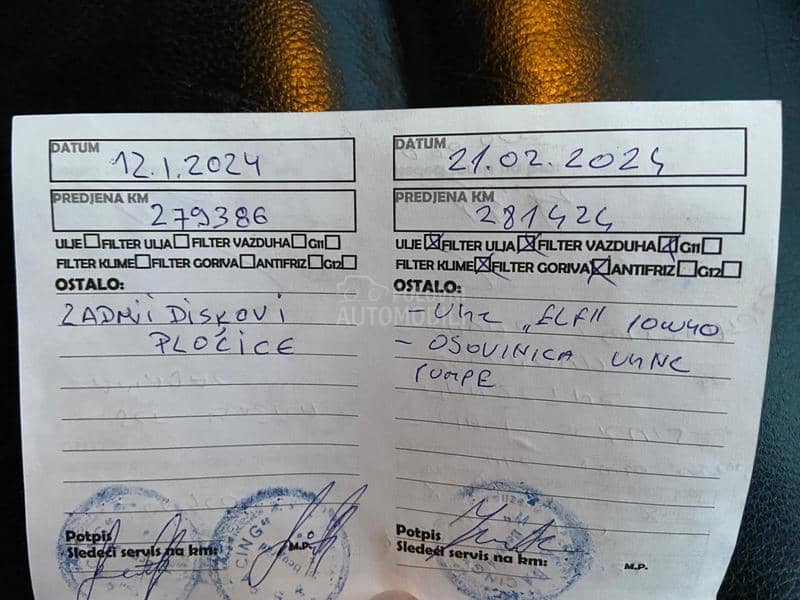 DATUM
12.1.2024
PREDJENA KM
279386
ULJE FILTER ULJA FILTER VAZDUHA G11
FILTER KLIME FILTER GORIVA ANTIFRIZ G12
OSTALO:
ZADNJI DISKOVI
PLOČICE
Potpis
Sledeći servis na km:
M.P.
"CING"
DATUM
21.02.2024
PREDJENA KM
281424
ULJE FILTER ULJA FILTER VAZDUHA G11
FILTER KLIME FILTER GORIVA ANTIFRIZ G12
OSTALO:
- ULJE "ELF" 10W40
- OSOVINICA ULJNE
PUMPE
Potpis
Sledeći servis na km:
M.P.
POLOVNI
AUTOMOBILI